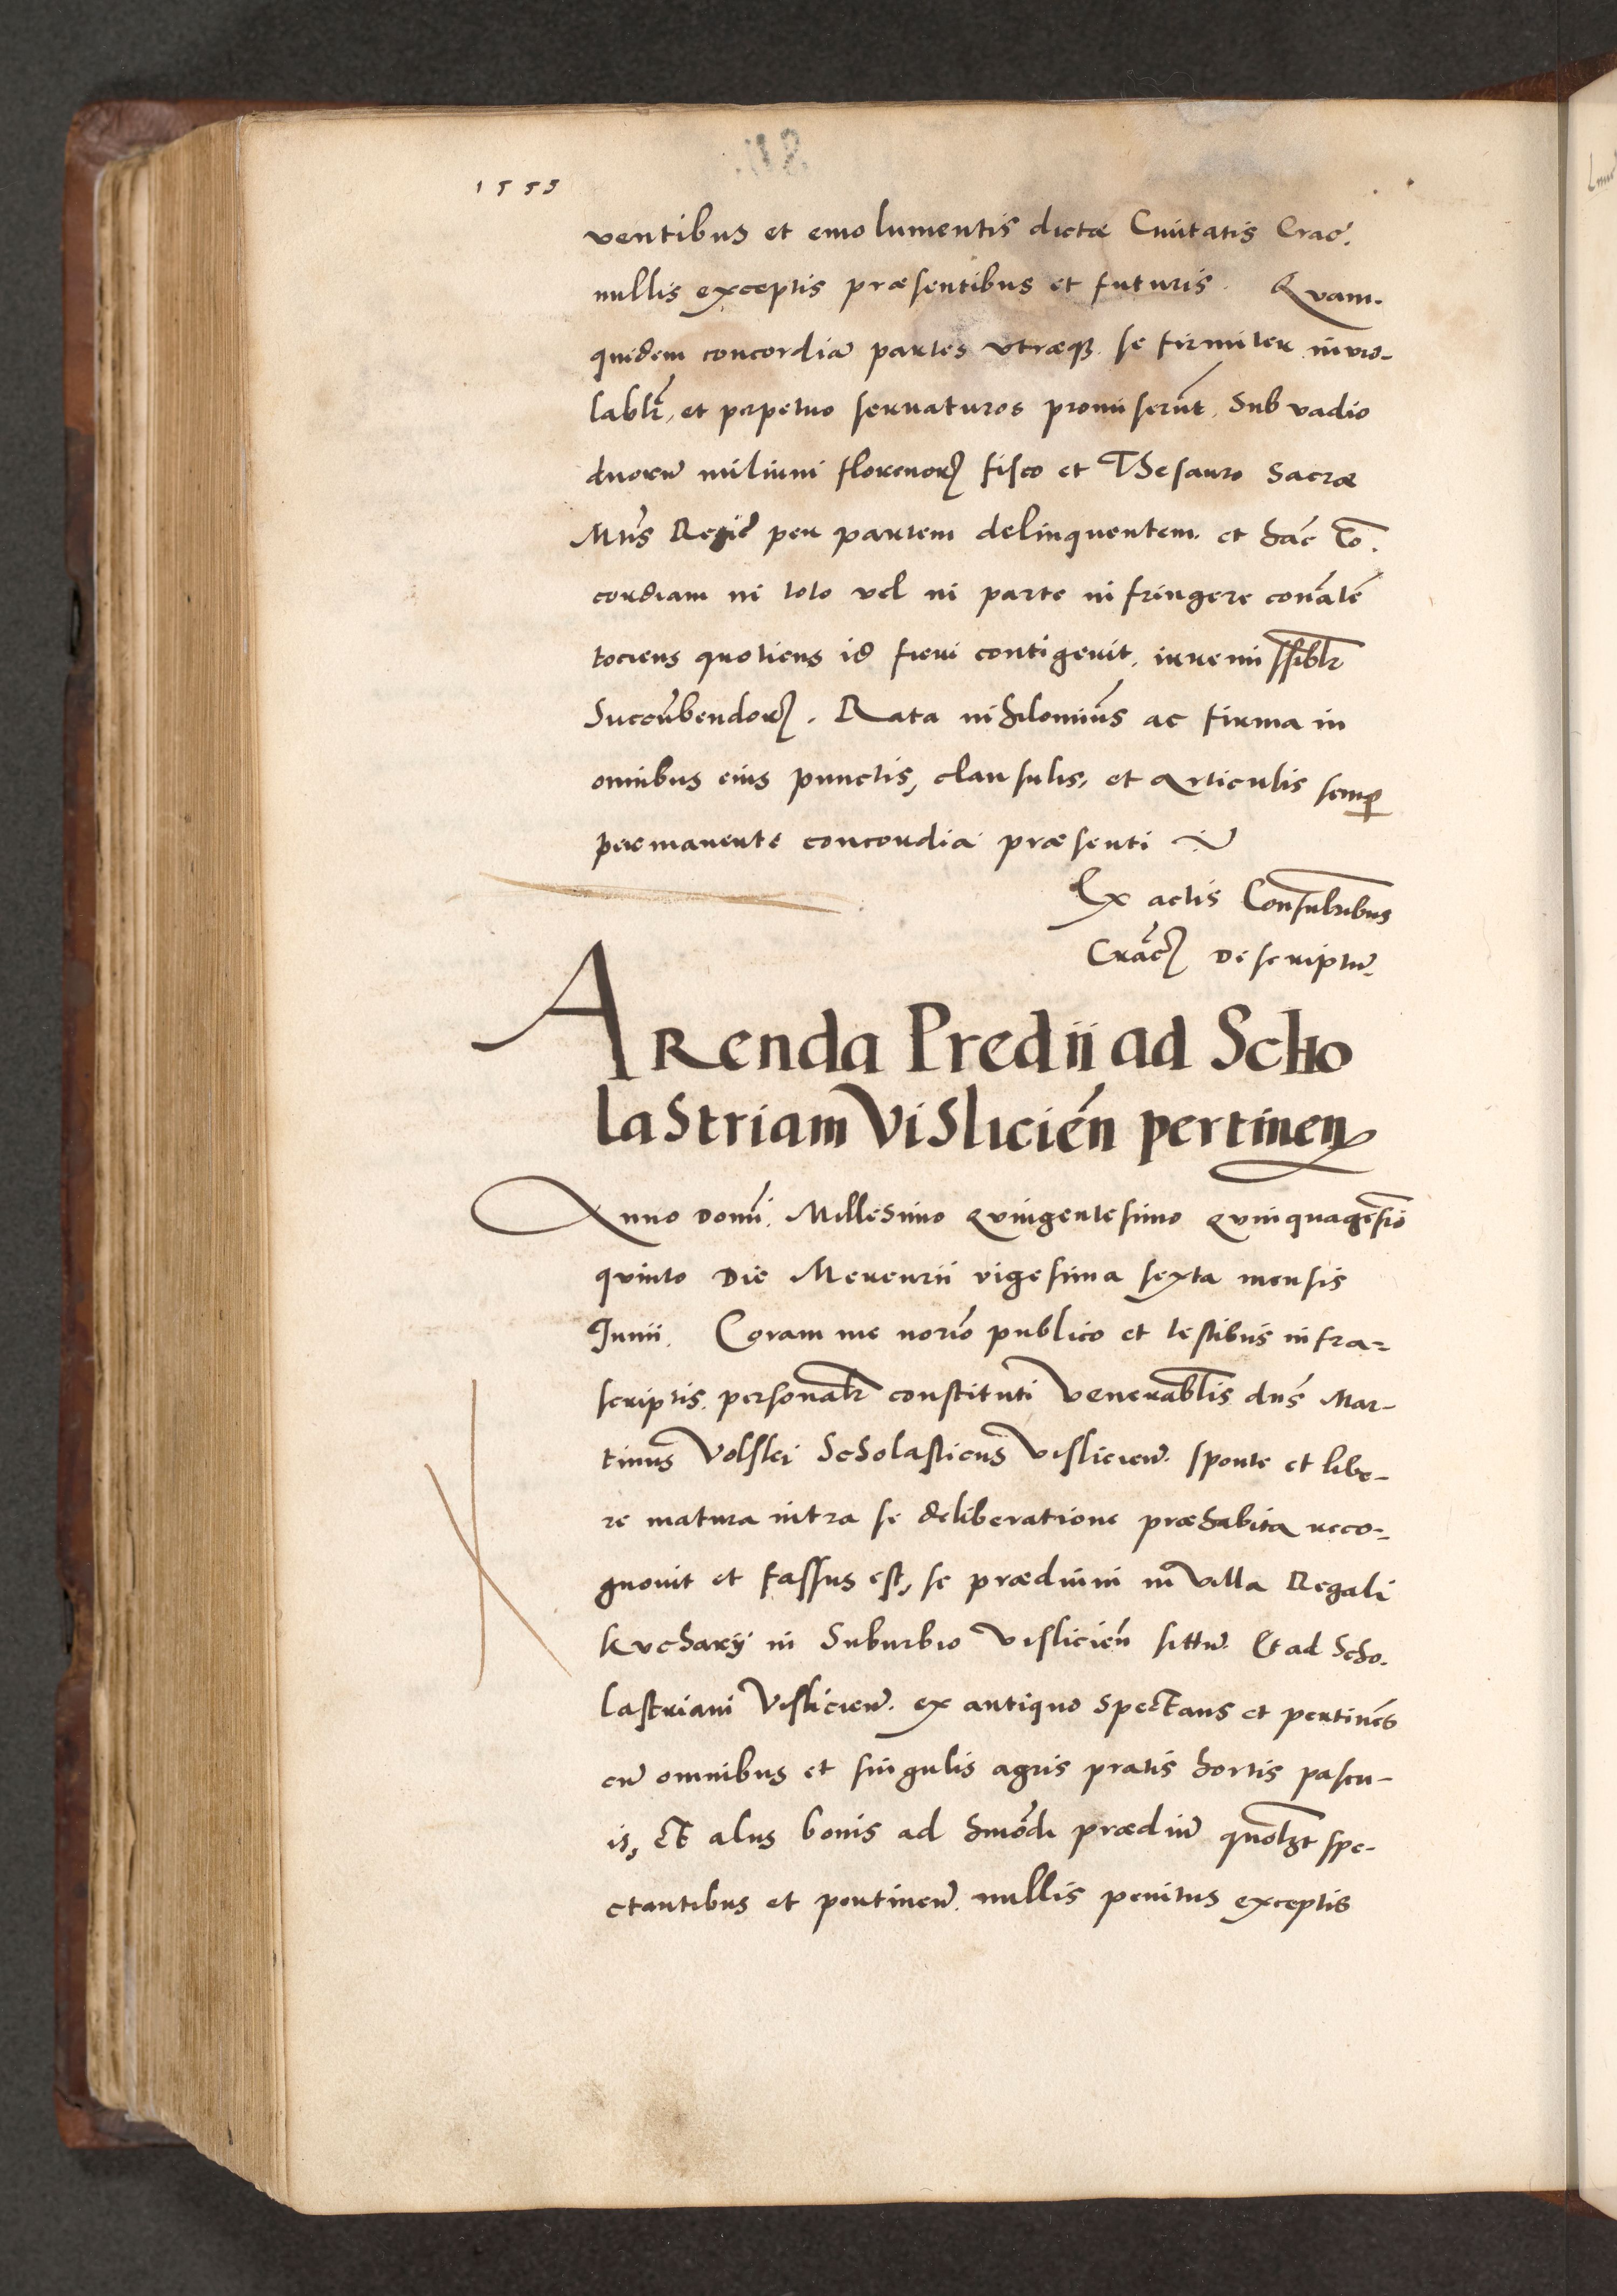 1555
ventibus et emolumentis dictæ Ciuitatis Crac̄.
nullis exceptis præsentibus et futuris. Qvam-
quidem concordiā partes vtræq; se firmiter inuio-
labłr, et perpetuo seruaturos promiserūt, Sub vadio
duorū milium florenorꝝ fisco et Thesauro Sacræ
Mtis Regiæ per partem delinquentem et hāc Cō-
cordiam in toto vel in parte infringere conātē
tociens quotiens id fieri contigerit, irremissibłr
Succūbendorꝝ. Rata nihilominus ac firma in
omnibus eius punctis, clausulis, et articulis semp̱
permanente concordia præsenti
Ex actis Consularibus
Cracꝝ Descriptū.
Arenda Predii ad Scho
lastriam Vislicień pertinen̄
Anno Domī Millesimo Qvingentesimo Qvinquagesīo
qvinto Die Mercurii vigesima sexta mensis
Junii. Coram me norīo publico et testibus infra-
scriptis, personałr constituti Venerabłis dn̄s Mar-
tinus Volski Scholasticus Vislicien̄. sponte et libe-
re matura intra se deliberatione præhabita reco-
gnouit et fassus est, se prædium in Villa Regali
Kvcharÿ in Suburbio Vislicień sittū. Et ad Scho-
lastriam Vislicien̄. ex antiquo spectans et pertinēs
cū omnibus et singulis agris pratis hortis pascu-
is, Et aliis bonis ad hmōdi prædiū quołzt spe-
ctantibus et pertinen̄. nullis penitus exceptis